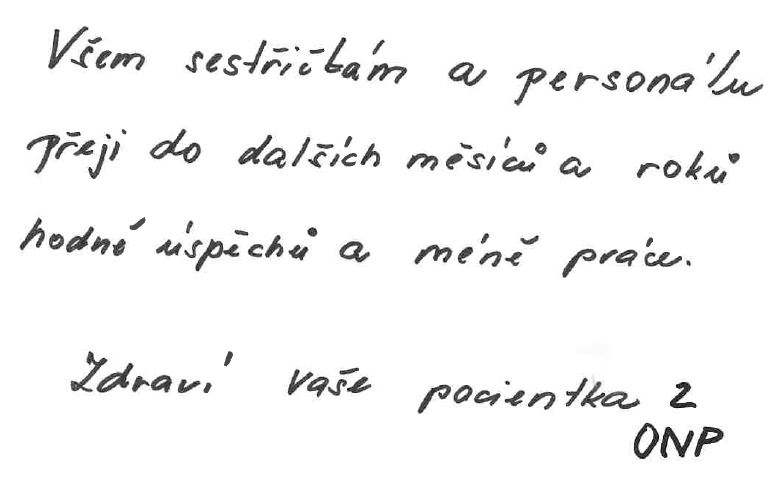 Všem sestřičkám a personálu
přeji do dalších měsíců a roků
hodně úspěchů a méně práce.
Zdraví vaše pacientka z
ONP